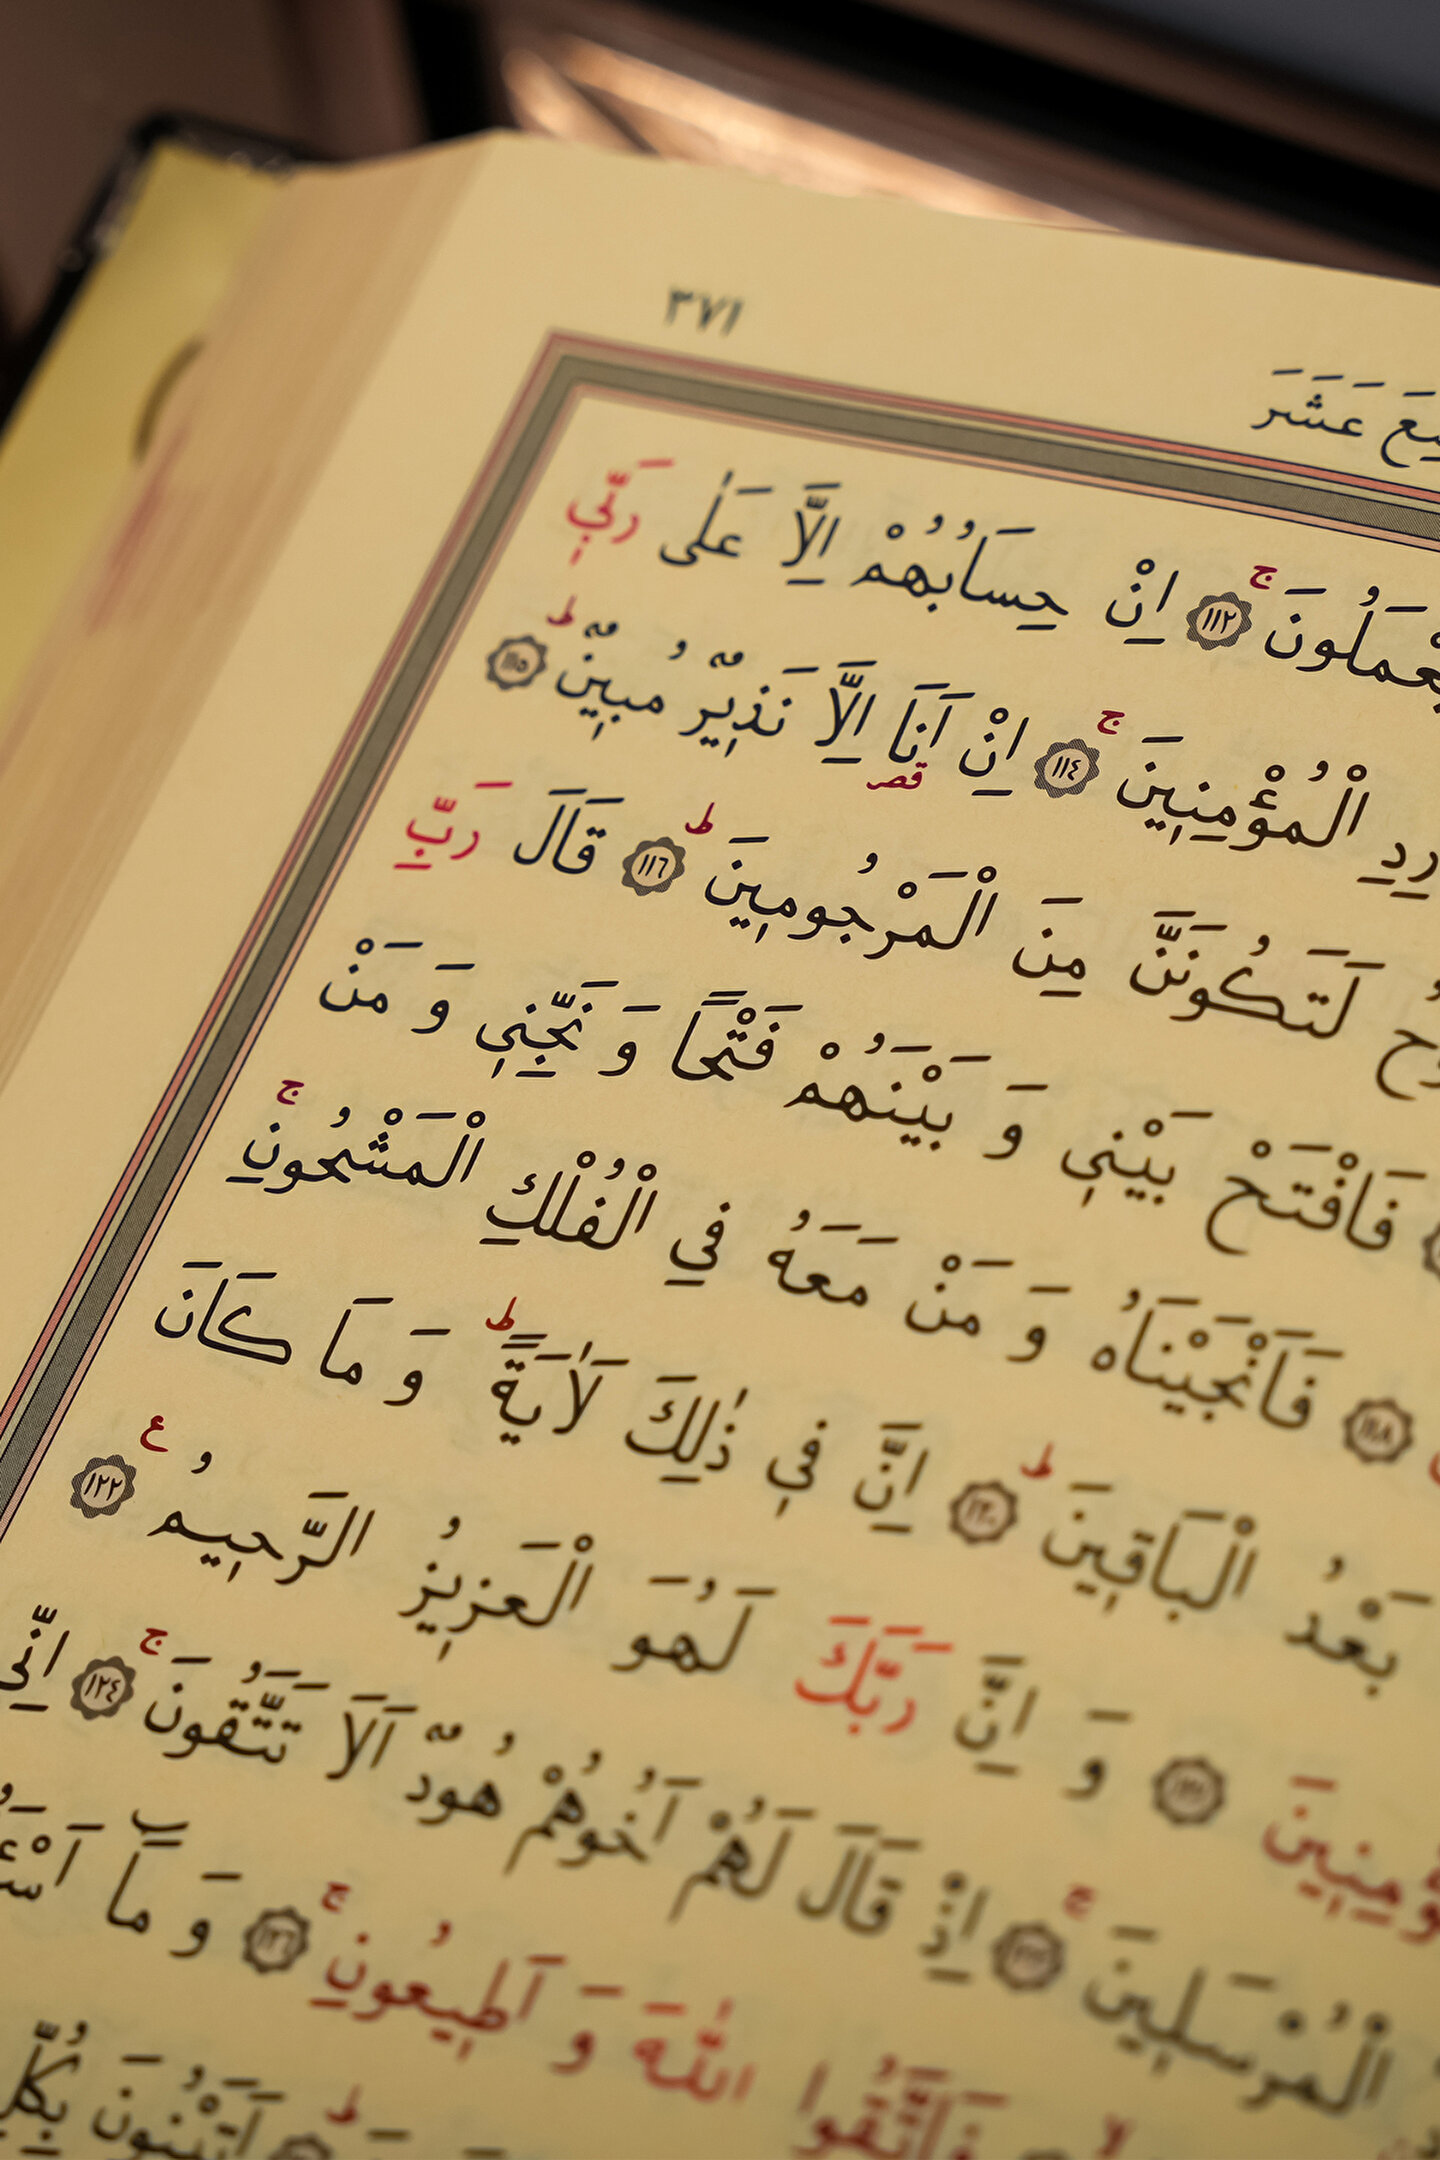 ٣٧١
عَشَرَ
يَعْمَلُونَۚ ﴿١١٢﴾ اِنْ حِسَابُهُمْ اِلَّا عَلٰى رَبّ۪ي
الْمُؤْمِن۪ينَۚ ﴿١١٤﴾ اِنْ اَنَا۬ قصر اِلَّا نَذ۪يرٌ مُب۪ينٌۜ ﴿١١٥﴾
لَتَكُونَنَّ مِنَ الْمَرْجُوم۪ينَۜ ﴿١١٦﴾ قَالَ رَبِّ
فَافْتَحْ بَيْن۪ي وَ بَيْنَهُمْ فَتْحًا وَ نَجِّن۪ي وَ مَنْ
﴿١١٨﴾ فَاَنْجَيْنَاهُ وَ مَنْ مَعَهُ فِي الْفُلْكِ الْمَشْحُونِۚ
بَعْدُ الْبَاق۪ينَۜ ﴿١٢٠﴾ اِنَّ ف۪ي ذٰلِكَ لَاٰيَةًۜ وَ مَا كَانَ
﴿١٢١﴾ وَ اِنَّ رَبَّكَ لَهُوَ الْعَز۪يزُ الرَّح۪يمُ ع ﴿١٢٢﴾
الْمُرْسَل۪ينَۚ ﴿١٢٣﴾ اِذْ قَالَ لَهُمْ اَخُوهُمْ هُودٌ اَلَا تَتَّقُونَۚ ﴿١٢٤﴾ اِنّ۪ي
فَاتَّقُوا اللّٰهَ وَ اَط۪يعُونِۚ ﴿١٢٦﴾ وَ مَا
اَتَبْنُونَ بِكُلِّ